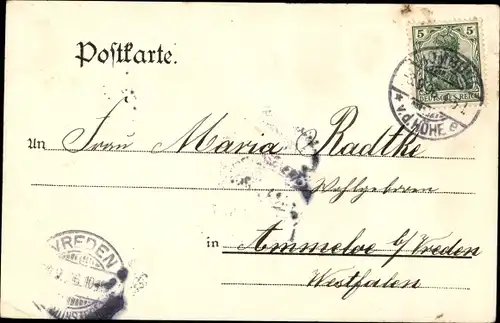 Postkarte.
5 5
DEUTSCHES REICH
* v.d. HÖHE
An Frau Maria Radtke
Wohlgeboren
in Ammeloe b/Vreden
Westfalen
VREDEN